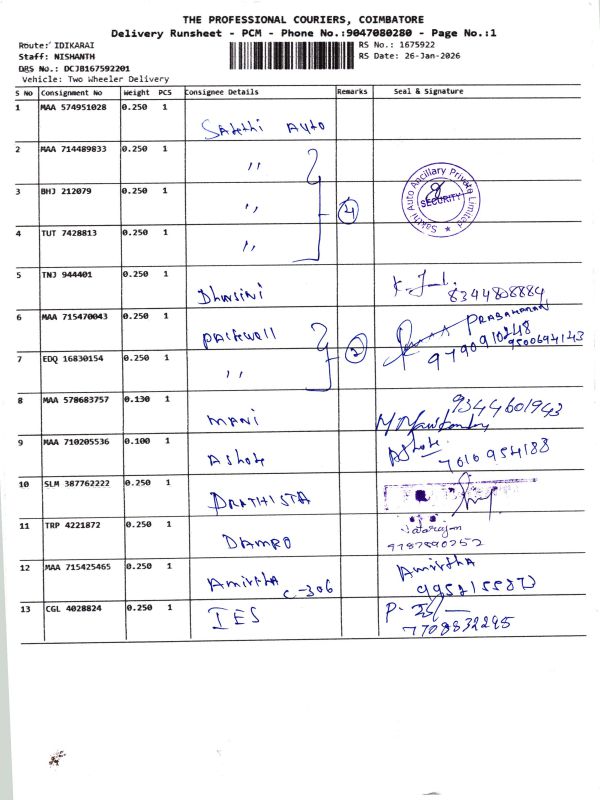 THE PROFESSIONAL COURIERS, COIMBATORE
Delivery Runsheet - PCM - Phone No.:9047080280 - Page No.:1
Route: IDIKARAI
RS No.: 1675922
Staff: NISHANTH
RS Date: 26-Jan-2026
DRS No.: DCJ8167592201
Vehicle: Two Wheeler Delivery
S No Consignment No Weight PCS Consignee Details Remarks Seal & Signature
1 MAA 574951028 0.250 1 Sakthi Auto
2 MAA 714489833 0.250 1 ,,
3 BHJ 212079 0.250 1 ,, 4
Sakthi Auto Ancillary Private Limited
SECURITY
4 TUT 7428813 0.250 1 ,,
5 TNJ 944401 0.250 1 Dhwsini
8344808884
6 MAA 715470043 0.250 1 2 PRABAHARAN
9790910248
9500694143
7 EDQ 16830154 0.250 1 ,,
8 MAA 578683757 0.130 1 MANI 9344601943
9 MAA 710205536 0.100 1 Ashok Ashok
7010954188
10 SLM 387762222 0.250 1 PRATHISTA
11 TRP 4221872 0.250 1 DAMRO Natarajan
9787890252
12 MAA 715425465 0.250 1 Amirtha C-306 Amirtha
13 CGL 4028824 0.250 1 IES
7708832295